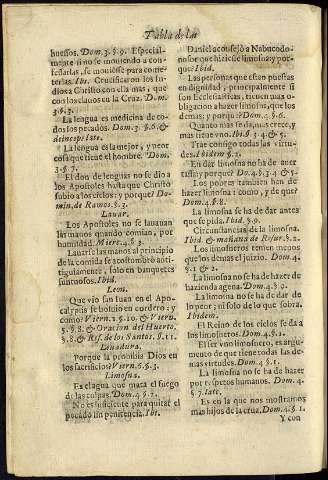 Tabla de las
huessos. Dom. 3. §. 9. Especial-
mente si no se mouiendo a con-
fessarlas, se mouiesse para come-
terlas. Ibi. Crucificaron los Iu-
dios a Christo con ella mas, que
con los clauos en la Cruz. Dom.
3. §. 5.
La lengua es medicina de to-
dos los pecados. Dom. 3. §. 6. &
deinceps late.
La lengua es la mejor, y peor
cosa que tiene el hombre. Dom.
3. §. 7.
El don de lenguas no se dio a
los Apostoles hasta que Christo
subio a los cielos: y porque? Do-
min. de Ramos. §. 2.
Lauar.
Los Apostoles no se lauauan
las manos quando comian, por
humildad. Mierc. 4. §. 3.
Lauarse las manos al principio
de la comida se acostumbrò anti-
tiguamente, solo en banquetes
suntuosos. Ibid.
Leon.
Que vio san Iuan en el Apo-
calypsis se boluio en cordero, y
como? Viern. 2. §. 10. & Viern.
5. §. 8. & Oracion del Huerto,
§. 8. & Ref. de los Santos. §. 11.
Leuadura.
Porque la prohibia Dios en
los sacrificios? Viern. 6. §. 1.
Limosna.
Es el agua que mata el fuego
de las culpas. Dom. 4. §. 2.
No es suficiente para quitar el
pecado sin penitencia. Ibi.
Daniel aconsejò a Nabucodo-
nosor que hiziesse limosna: y por-
que? Ibid.
Las personas que estan puestas
en dignidad, principalmente si
son Ecclesiasticas, tienen mas o-
bligacion a hazer limosna, que los
demas: y porque? Dom. 4. §. 6.
Quanto mas se dà, mas crece, y
mas tiene vno. Ibi. §. 4. & 5.
Trae consigo todas las virtu-
des. Ibidem §. 2.
En dar limosna no ha de auer
tassa: y porque? Do. 4. §. 3. 4 & 5.
Los pobres tambien han de
hazer limosna: como, y de que?
Dom. 4. §. 8.
La limosna se ha de dar antes
que se pida. Ibid. §. 9.
Circunstancias de la limosna.
Ibid. & mañana de Resur. §. 2.
Los limosneros temen menos
que los demas el juizio. Dom. 4.
§. 1. & 2.
La limosna no se ha de hazer de
hazienda agena. Dom. 4. §. 9.
La limosna no se ha de dar de
lo peor, ni solo de lo que sobra.
Ibidem.
El Reino de los cielos se da a
los limosneros. Dom. 4. §. 1.
El ser vno limosnero, es argu-
mento de que tiene todas las de-
mas virtudes. Dom. 4. §. 1.
La limosna no se ha de hazer
por respetos humanos. Dom. 4.
§. 7. late.
Es en la que nos mostramos
mas hijos de la cruz. Dom. 4. §. 1.
Y con